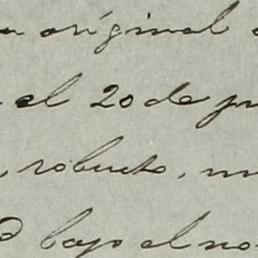 original
el 20 de
, robusto,
bajo el no